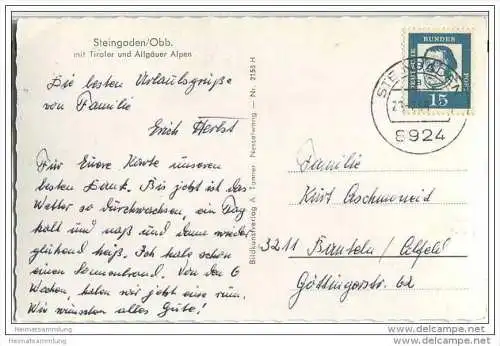 Steingaden/Obb.
mit Tiroler und Allgäuer Alpen
Die besten Urlaubsgrüße
von Familie
Erich Herbst
Für Euere Karte unseren
besten Dank. Bis jetzt ist das
Wetter so durchwachsen, ein Tag
kalt und naß und dann wieder
glühend heiß. Ich habe schon
einen Sonnenbrand. Von den 6
Wochen, haben wir jetzt eine rum.
Wir wünschen alles Gute!
Bildkunstverlag A. Tanner, Nesselwang - Nr. 2155 H
STEINGADEN
8924
DEUTSCHE BUNDESPOST
15
Familie
Kurt Aschmoneid
3211 Banteln/Alfeld
Göttingerstr. 62
Heimatsammlung
Heimatsammlung